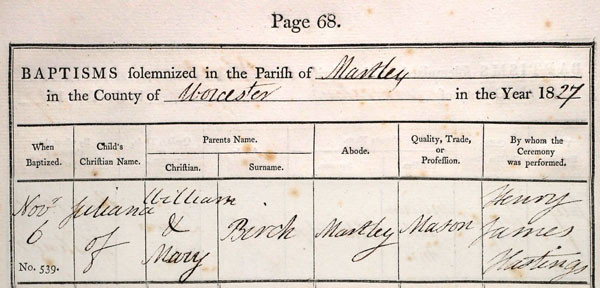 Page 68.
BAPTISMS solemnized in the Parish of Martley
in the County of Worcester in the Year 1827
When Baptized.
Child's Christian Name.
Parents Name.
Christian.
Surname.
Abode.
Quality, Trade, or Profession.
By whom the Ceremony was performed.
Novr
6
No. 539.
Juliana
of
William
&
Mary
Birch
Martley
Mason
Henry
James
Hastings